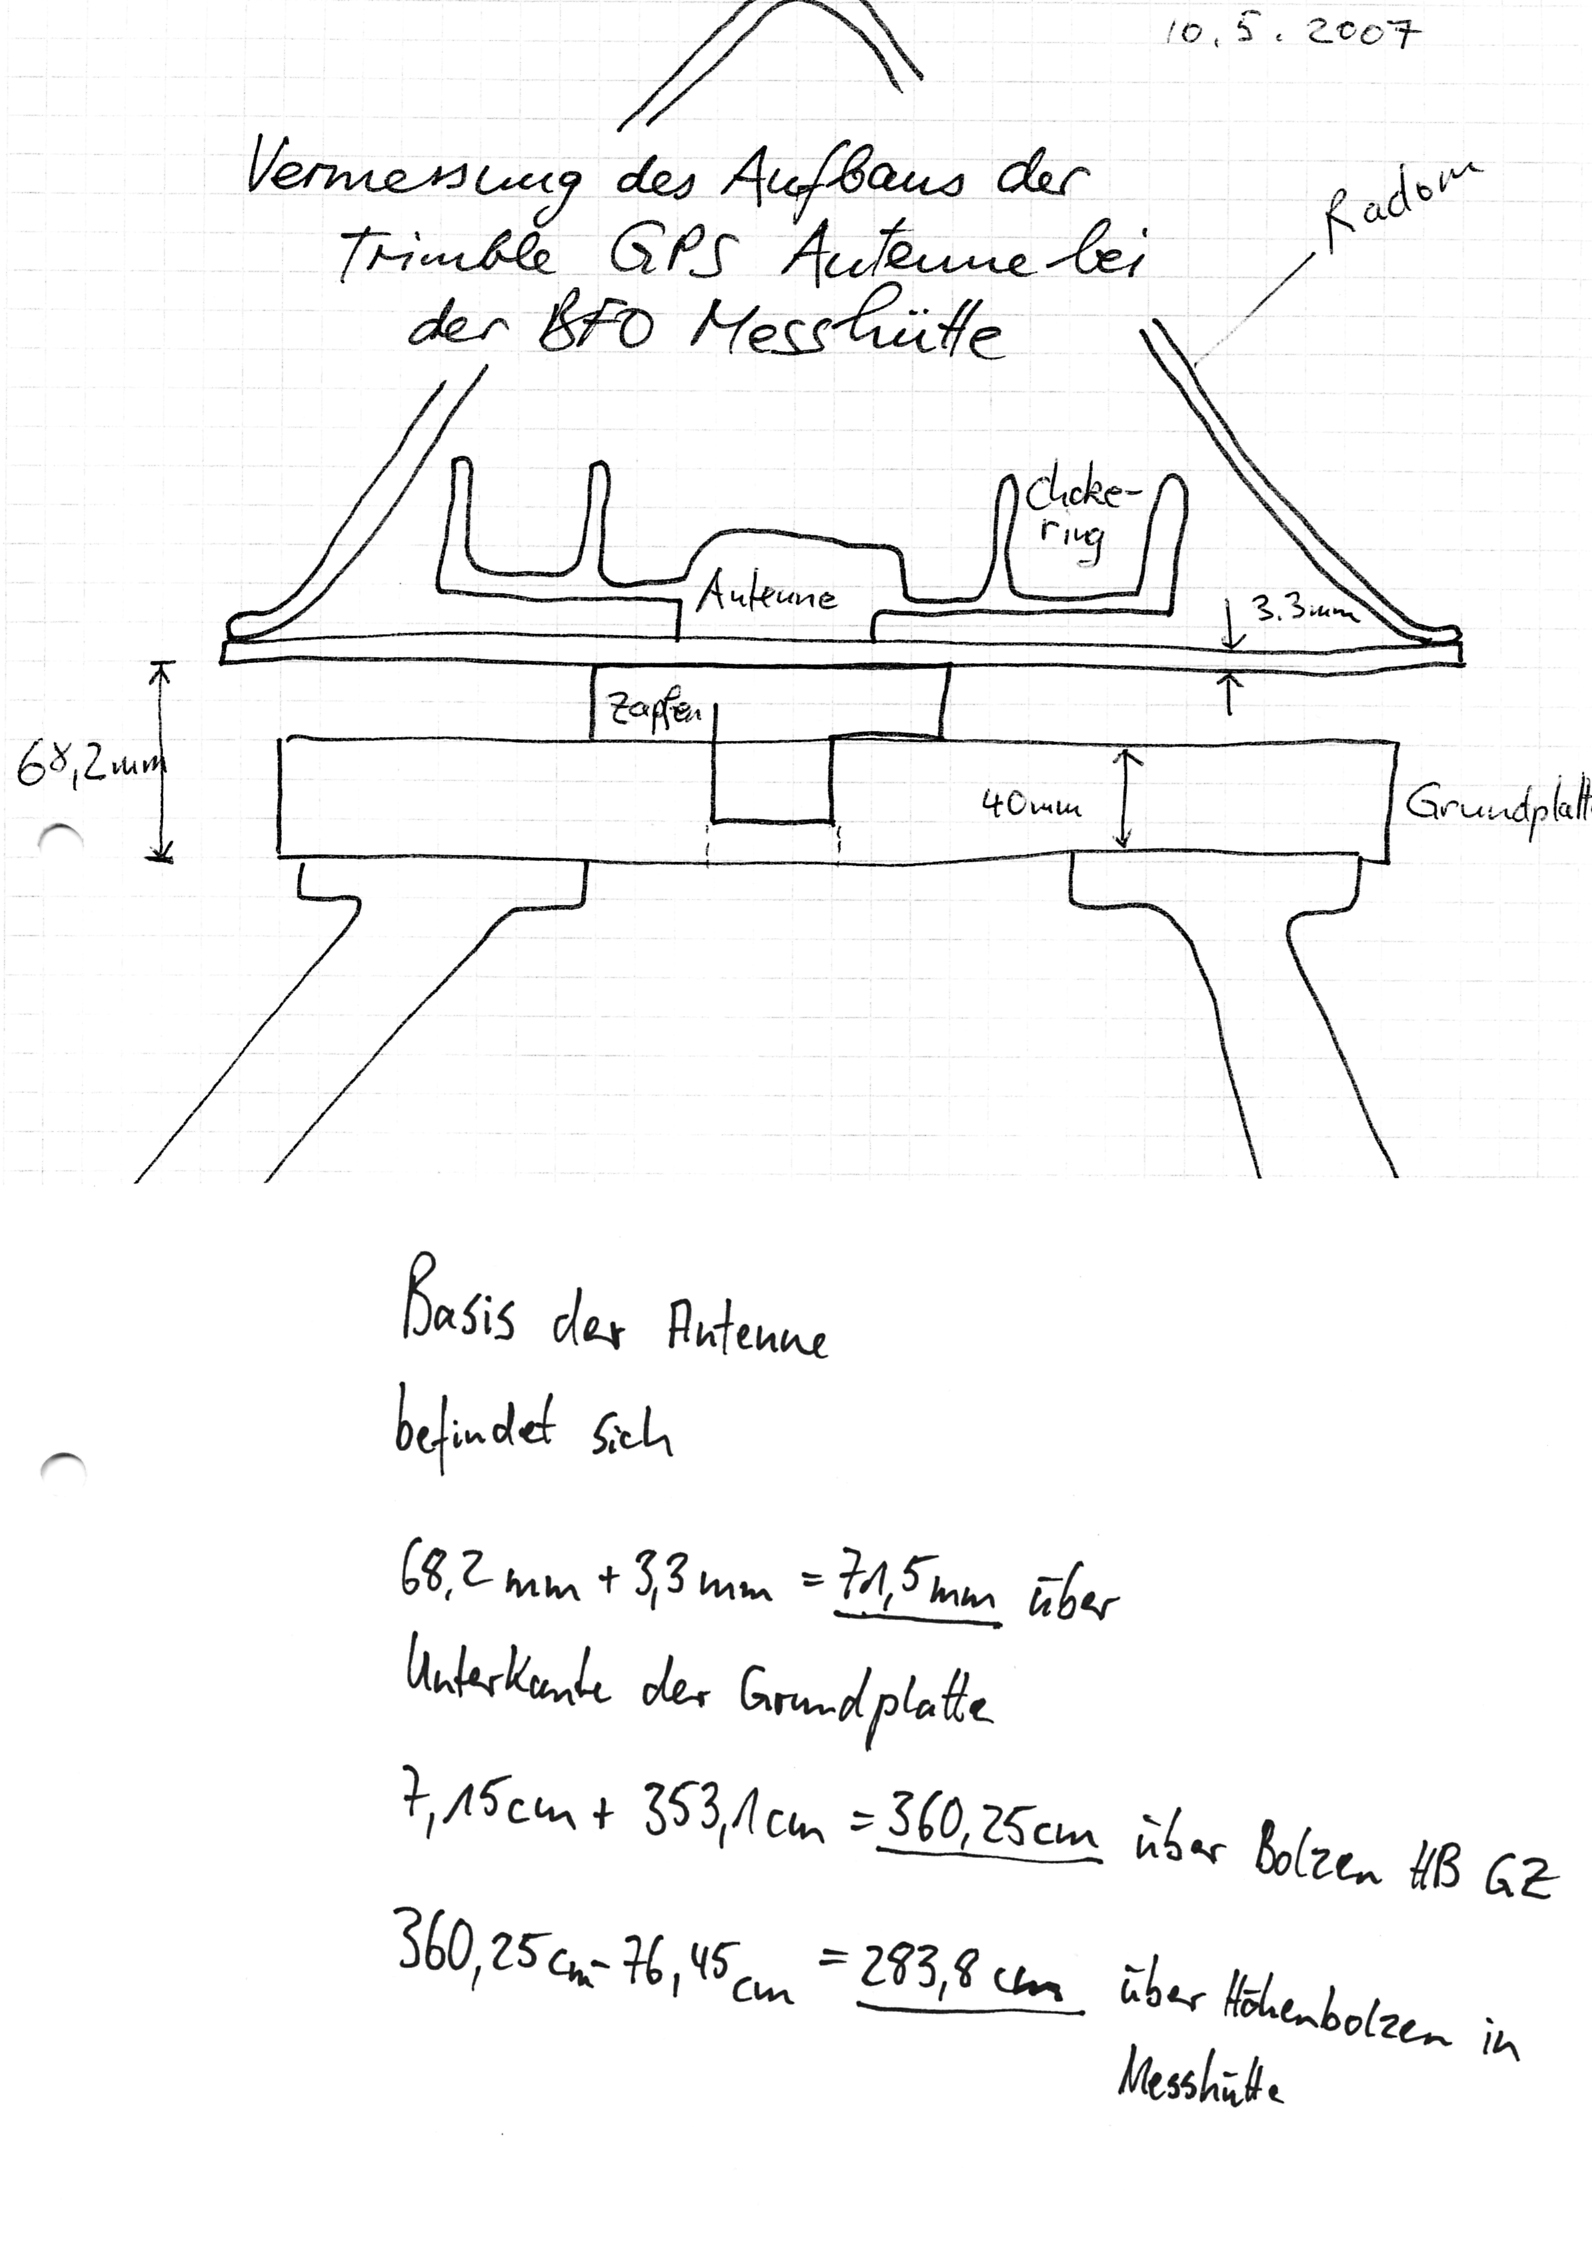 10.5.2007
Vermessung des Aufbaus der
Trimble GPS Antenne bei
der BFO Messhütte
Radom
Choke-
ring
Antenne
3.3mm
Zapfen
68,2mm
40mm
Grundplatte
Basis der Antenne
befindet sich
68,2mm + 3,3mm = 71,5mm über
Unterkante der Grundplatte
7,15cm + 353,1cm = 360,25cm über Bolzen HB GZ
360,25cm - 76,45cm = 283,8cm über Höhenbolzen in
Messhütte